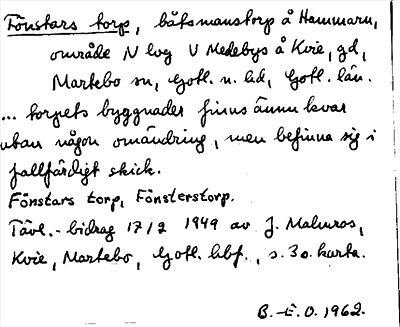 Fönstars torp, båtsmanstorp å Hammarn,
område N lvg V Medebys å Kvie, gd,
Martebo sn, Gotl. n. hd, Gotl. län.
... torpets byggnader finns ännu kvar
utan någon omändring, men befinna sig i
fallfärdigt skick.
Fönstars torp, Fönsterstorp.
Tävl.-bidrag 17/2 1949 av J. Malmros,
Kvie, Martebo, Gotl. hbf., s. 3 o. karta.
B.-E.O. 1962.